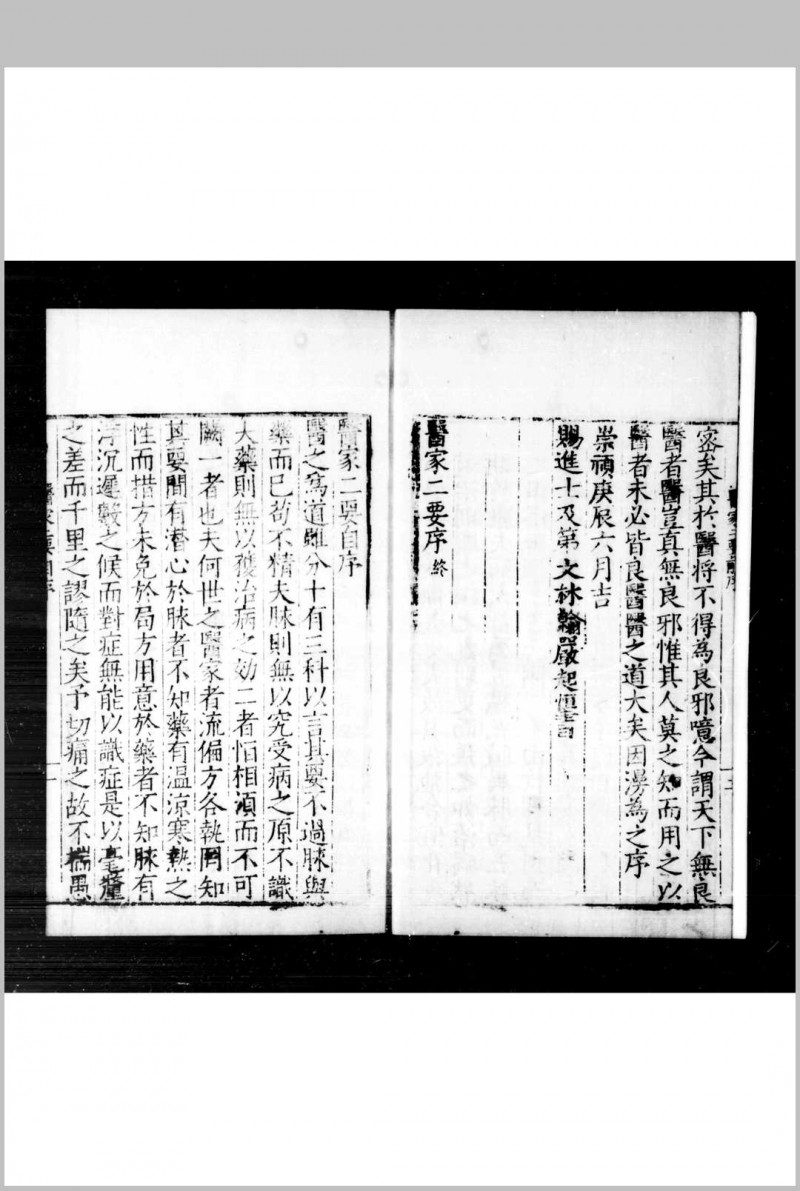 密矣其於醫將不得為良邪噫今謂天下無良
醫者醫豈真無良邪惟其人莫之知而用之以
醫者未必皆良醫醫之道大矣因漫為之序
崇禎庚辰六月吉
賜進士及第文林翰嚴起恒書
醫家二要序終
醫家二要自序
醫之為道雖分十有三科以言其要不過脉與
藥而已苟不精夫脉則無以究受病之原不識
夫藥則無以獲治病之効二者恒相湏而不可
闕一者也夫何世之醫家者流偏方各執罔知
其要間有潜心於脉者不知藥有温涼寒熱之
性而措方未免於局方用意於藥者不知脉有
浮沉遲數之候而對症無能以識症是以毫釐
之差而千里之謬隨之矣予切痛之故不揣愚